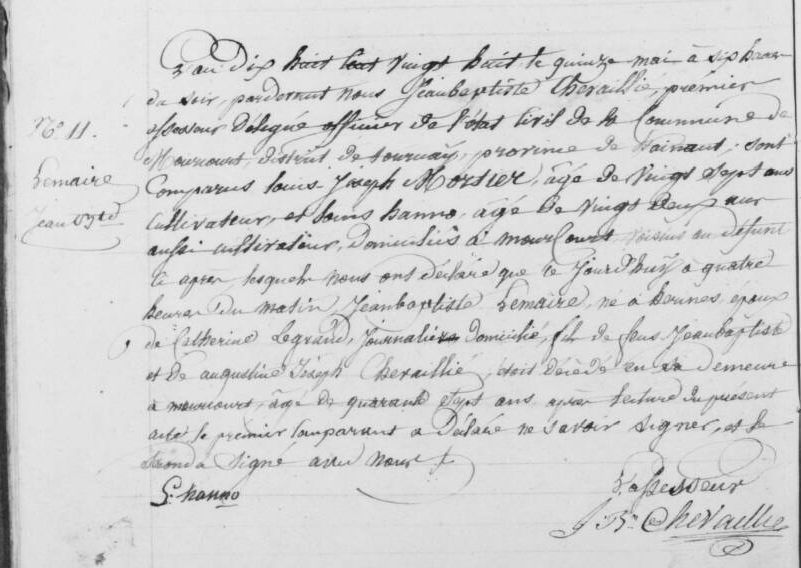 L'an Dix huit cent vingt huit le quinze mai à six heures
du soir, pardevant nous Jeanbaptiste Chevaillié, premier
assesseur délégué officier de l'état Civil de la Commune de
Mourcourt, district de tournay, province de hainaut, sont
N° 11.
Lemaire
Jean Bte
Comparus louis Joseph Mortier, âgé de vingt sept ans
cultivateur, et louis hanno, âgé de vingt deux ans
aussi cultivateur, domiciliés à mourcourt, voisins au défunt
ci après, lesquels nous ont déclaré que le jourd'huy à quatre
heures du matin, Jeanbaptiste Lemaire, né à , époux
de Catherine Legrand, Journalier domicilié, fils de feus Jeanbaptiste
et de augustine Joseph Chevaillié, étoit décédé en sa demeure
à mourcourt, âgé de quarante sept ans, après lecture du présent
acte le premier Comparant a déclaré ne savoir signer, et le
second a signé avec nous
L. hanno
L'assesseur
J Bte Chevaillié